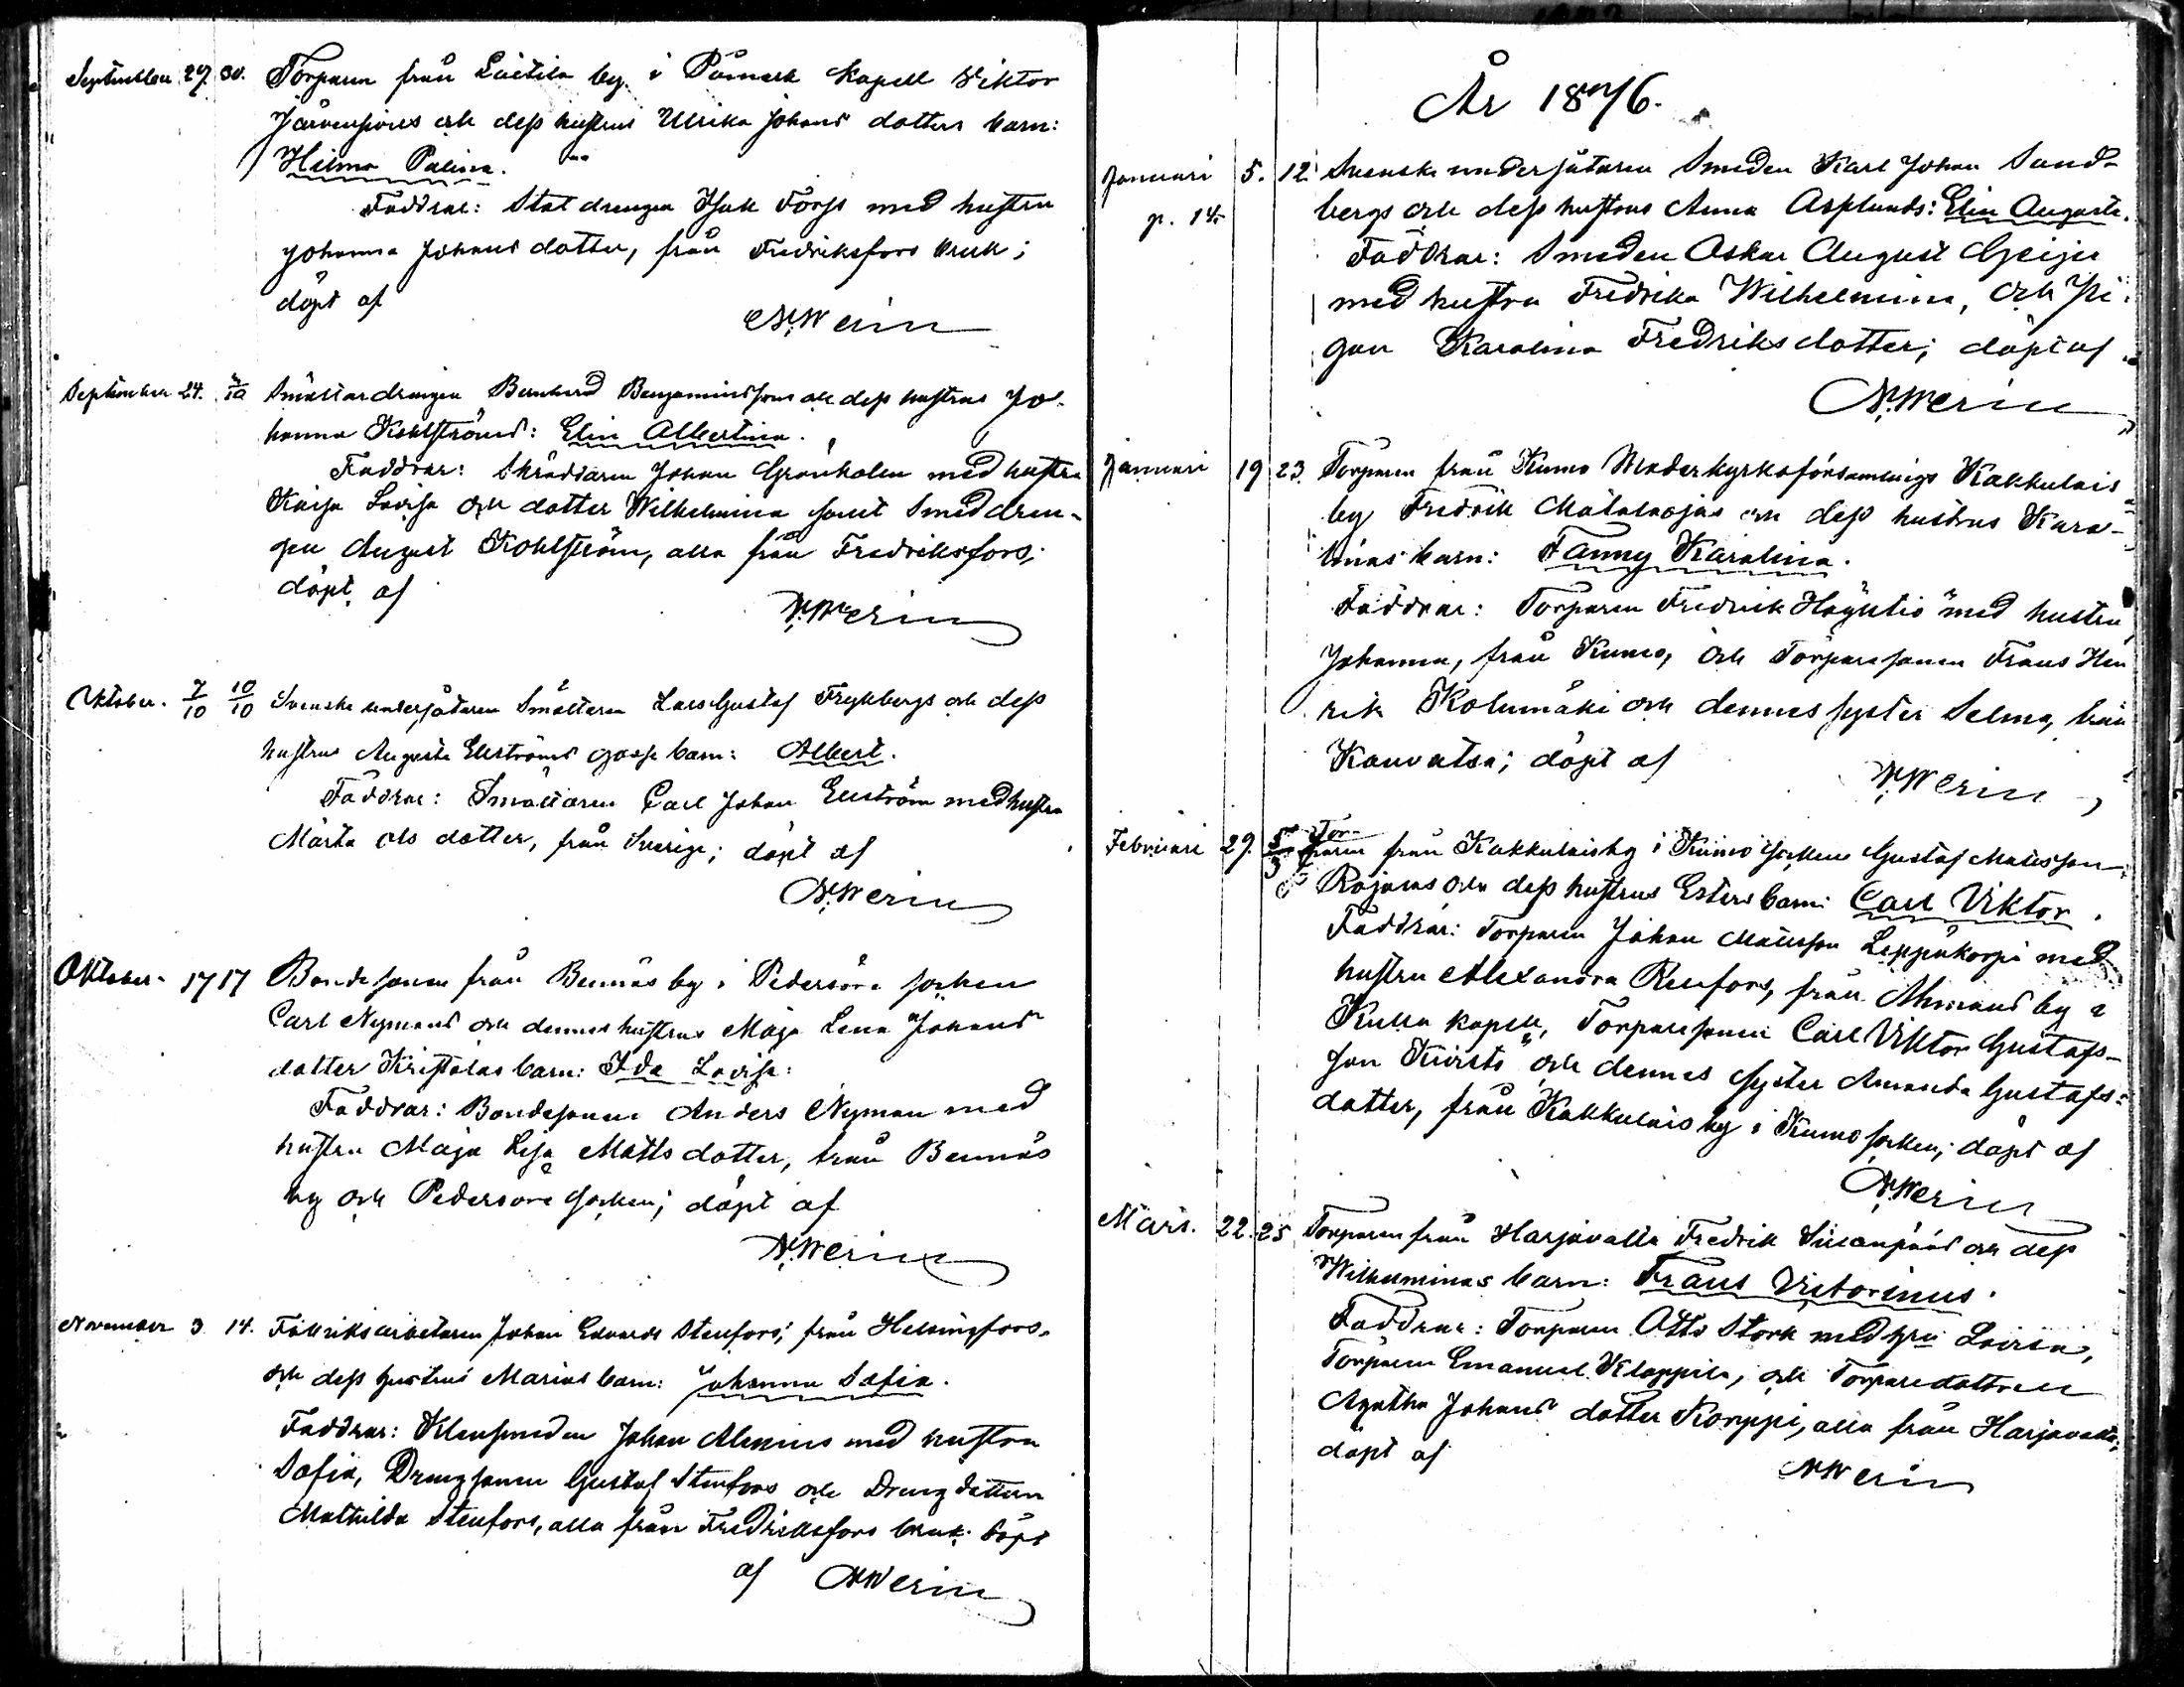 September 27. 30. Torparen från Laitila by i Påmark kapell Viktor
Järvenpääs och dess hustrus Ulrika Johans dotters barn:
Hilma Palina.
Faddrar: Statdrengen Isak Fors med hustru
Johanna Johans dotter, från Fredriksfors bruk;
döpt af
N. Werin
September 24. 3/10 Smältardrengen Bernhard Benjaminssons och dess hustrus Jo-
hanna Kohlströms: Elin Albertina.
Faddrar: Skräddaren Johan Grönholm med hustru
Kaisa Lovisa och dotter Wilhelmina samt Smeddren-
gen August Kohlström, alla från Fredriksfors;
döpt af
N. Werin
Oktober. 7/10 10/10 Svenske undersåtaren Smältaren Lars Gustaf Frykbergs och dess
hustrus Augusta Ekströms gosse barn: Albert.
Faddrar: Smältaren Carl Johan Ekström med hustru
Märta Ols dotter, från Sverige; döpt af
N. Werin
Oktober 17 17 Bondesonen från Bennäs by i Pedersöre socken
Carl Nymans och dennes hustrus Maja Lena Johans
dotter Kristolas barn: Ida Lovisa:
Faddrar: Bondesonen Anders Nyman med
hustru Maja Lisa Matts dotter, från Bennäs
by och Pedersöre socken; döpt af
N. Werin
November 3 14. Fabriksarbetaren Johan Edvards Stenfors, från Helsingfors
och dess hustrus Marias barn: Johanna Sofia.
Faddrar: Klensmeden Johan Alenius med hustru
Sofia, Drengsonen Gustaf Stenfors och Drengdottern
Mathilda Stenfors, alla från Fredriksfors bruk. Döpt
af N Werin
År 1876.
Januari 5. 12 Svenske undersåtaren Smeden Karl Johan Sand-
p. 14 bergs och dess hustrus Anna Asplunds: Elin Augusta.
Faddrar: Smeden Oskar August Geijer
med hustru Fredrika Wilhelmina, och Pi-
gan Karolina Fredriksdotter; döpt af
N. Werin
Januari 19 23. Torparen från Kumo Moderkyrkoförsamlings Kakkulais
by Fredrik Matalaojas och dess hustrus Karo-
linas barn: Fanny Karolina.
Faddrar: Torparen Fredrik Höyktiö med hustru
Johanna, från Kumo, och Torparesonen Frans Hen
rik Kolumäki och dennes syster Selma, från
Kauvatsa; döpt af
N. Werin
Februari 29. 5/3 Tor-
paren från Kakkulais by i Kumo socken Gustaf Matsson
Rojanas och dess hustrus Esters barn: Carl Viktor.
Faddrar: Torparen Johan Mattsson Leppäkorpi med
hustru Alexandra Renfors, från Ahmaus by i
Kulla kapell, Torparesonen Carl Viktor Gustafs-
son Kuusto och dennes syster Amanda Gustafs-
dotter, från Kakkulais by i Kumo socken; döpt af
N. Werin
Mars. 22. 25 Torparen från Harjavalta Fredrik Siltanpääs och dess
Wilhelminas barn: Frans Vistorinus.
Faddrar: Torparen Otto Stork med hru Lovisa,
Torparen Emanuel Klappila, och Torparedottren
Agatha Johans dotter Korppi, alla från Harjavalta;
döpt af
N Werin